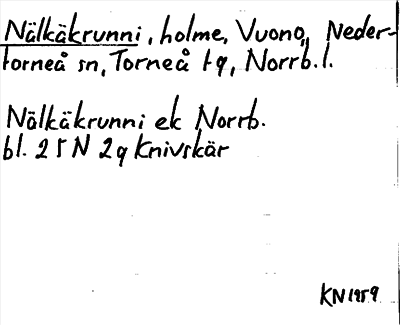 Nälkäkrunni, holme, Vuono, Neder-
torneå sn, Torneå tg, Norrb. l.
Nälkäkrunni ek Norrb.
bl. 25 N 2g Knivskär
KN 1959